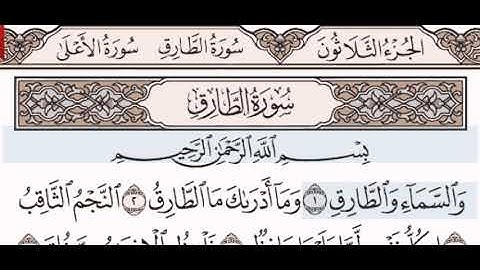 الجُزْءُ الثَّلَاثُونَ سُورَةُ الطَّارِقِ سُورَةُ الأَعْلَى
سُورَةُ الطَّارِقِ
بِسْمِ اللَّهِ الرَّحْمَٰنِ الرَّحِيمِ
وَالسَّمَآءِ وَالطَّارِقِ ١ وَمَآ أَدْرَىٰكَ مَا الطَّارِقُ ٢ النَّجْمُ الثَّاقِبُ